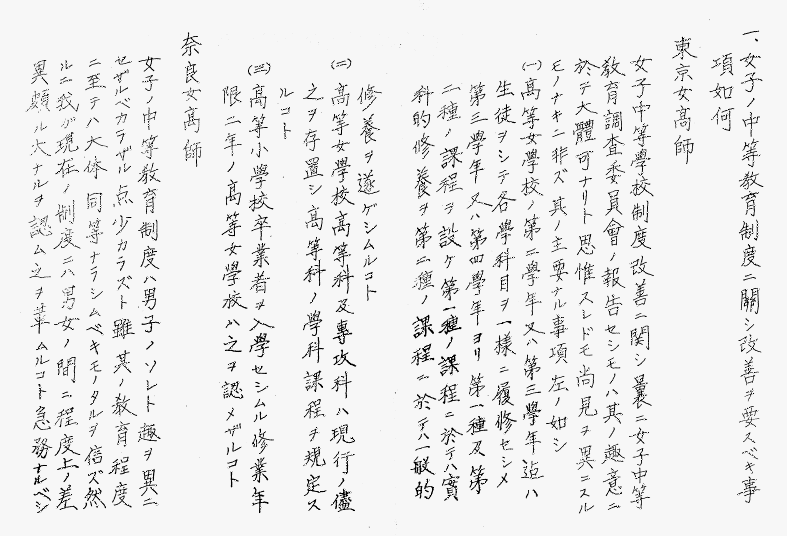 一、女子ノ中等教育制度ニ關シ改善ヲ要スベキ事
項如何
東京女高師
女子中等學校制度改善ニ関シ曩ニ女子中等
教育調査委員會ノ報告セシモノハ其ノ趣意ニ
於テ大體可ナリト思惟スレドモ尚見ヲ異ニスル
モノナキニ非ズ其ノ主要ナル事項左ノ如シ
(一)高等女學校ノ第二學年又ハ第三學年迠ハ
生徒ヲシテ各學科目ヲ一様ニ履修セシメ
第三學年又ハ第四學年ヨリ第一種及第
二種ノ課程ヲ設ケ第一種ノ課程ニ於テハ實
科的修養ヲ第二種ノ課程ニ於テハ一般的
修養ヲ遂ゲシムルコト
(二)高等女學校高等科及専攻科ハ現行ノ儘
之ヲ存置シ高等科ノ學科課程ヲ規定ス
ルコト
(三)高等小學校卒業者ヲ入學セシムル修業年
限二年ノ高等女學校ハ之ヲ認メザルコト
奈良女高師
女子ノ中等教育制度ハ男子ノソレト趣ヲ異ニ
セザルベカラザル点少カラズト雖其ノ教育程度
ニ至テハ大体同等ナラシムベキモノタルヲ信ズ然
ルニ我が現在ノ制度ニハ男女ノ間ニ程度上ノ差
異頗ル大ナルヲ認ム之ヲ革ムルコト急務ナルベシ